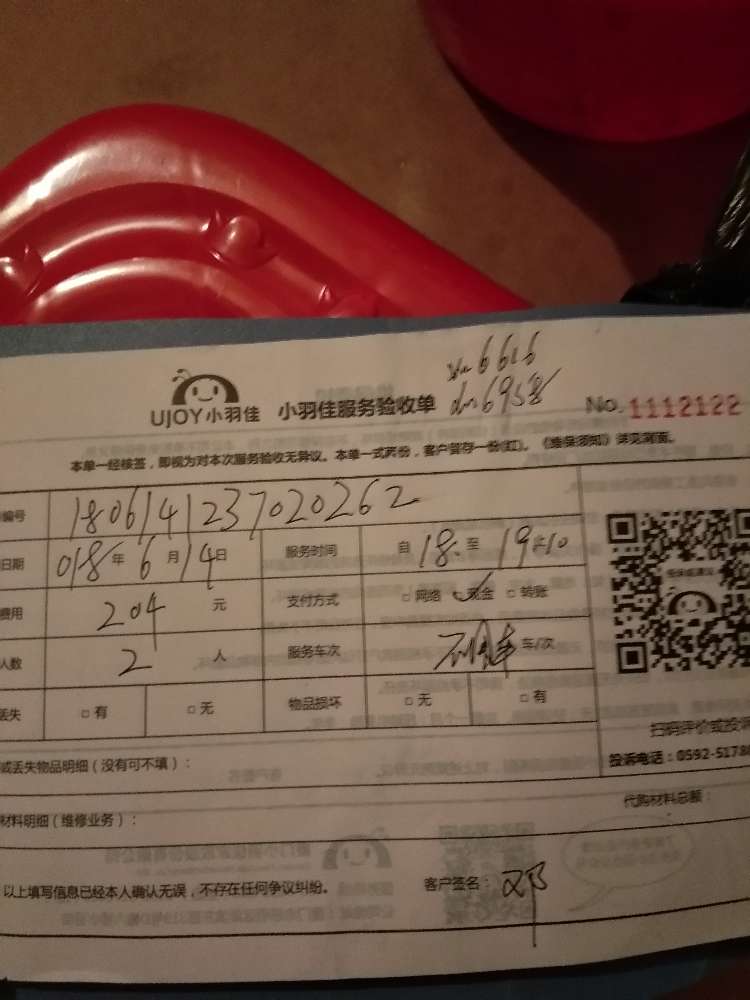 xm6616
UJOY小羽佳 小羽佳服务验收单 dn6958 No.1112122
本单一经核签，即视为对本次服务验收无异议。本单一式两份，客户留存一份(红)。《维保须知》详见背面。
编号 1806141237020262
日期 018年6月14日 服务时间 自18:至19:10
费用 204元 支付方式 □网络 ✓现金 □转账
人数 2人 服务车次 车/次
丢失 □有 □无 物品损坏 □无 □有
扫码评价或投诉
或丢失物品明细（没有可不填）： 投诉电话：0592-5178
代购材料总额：
材料明细（维修业务）：
以上填写信息已经本人确认无误，不存在任何争议纠纷。 客户签名：邓